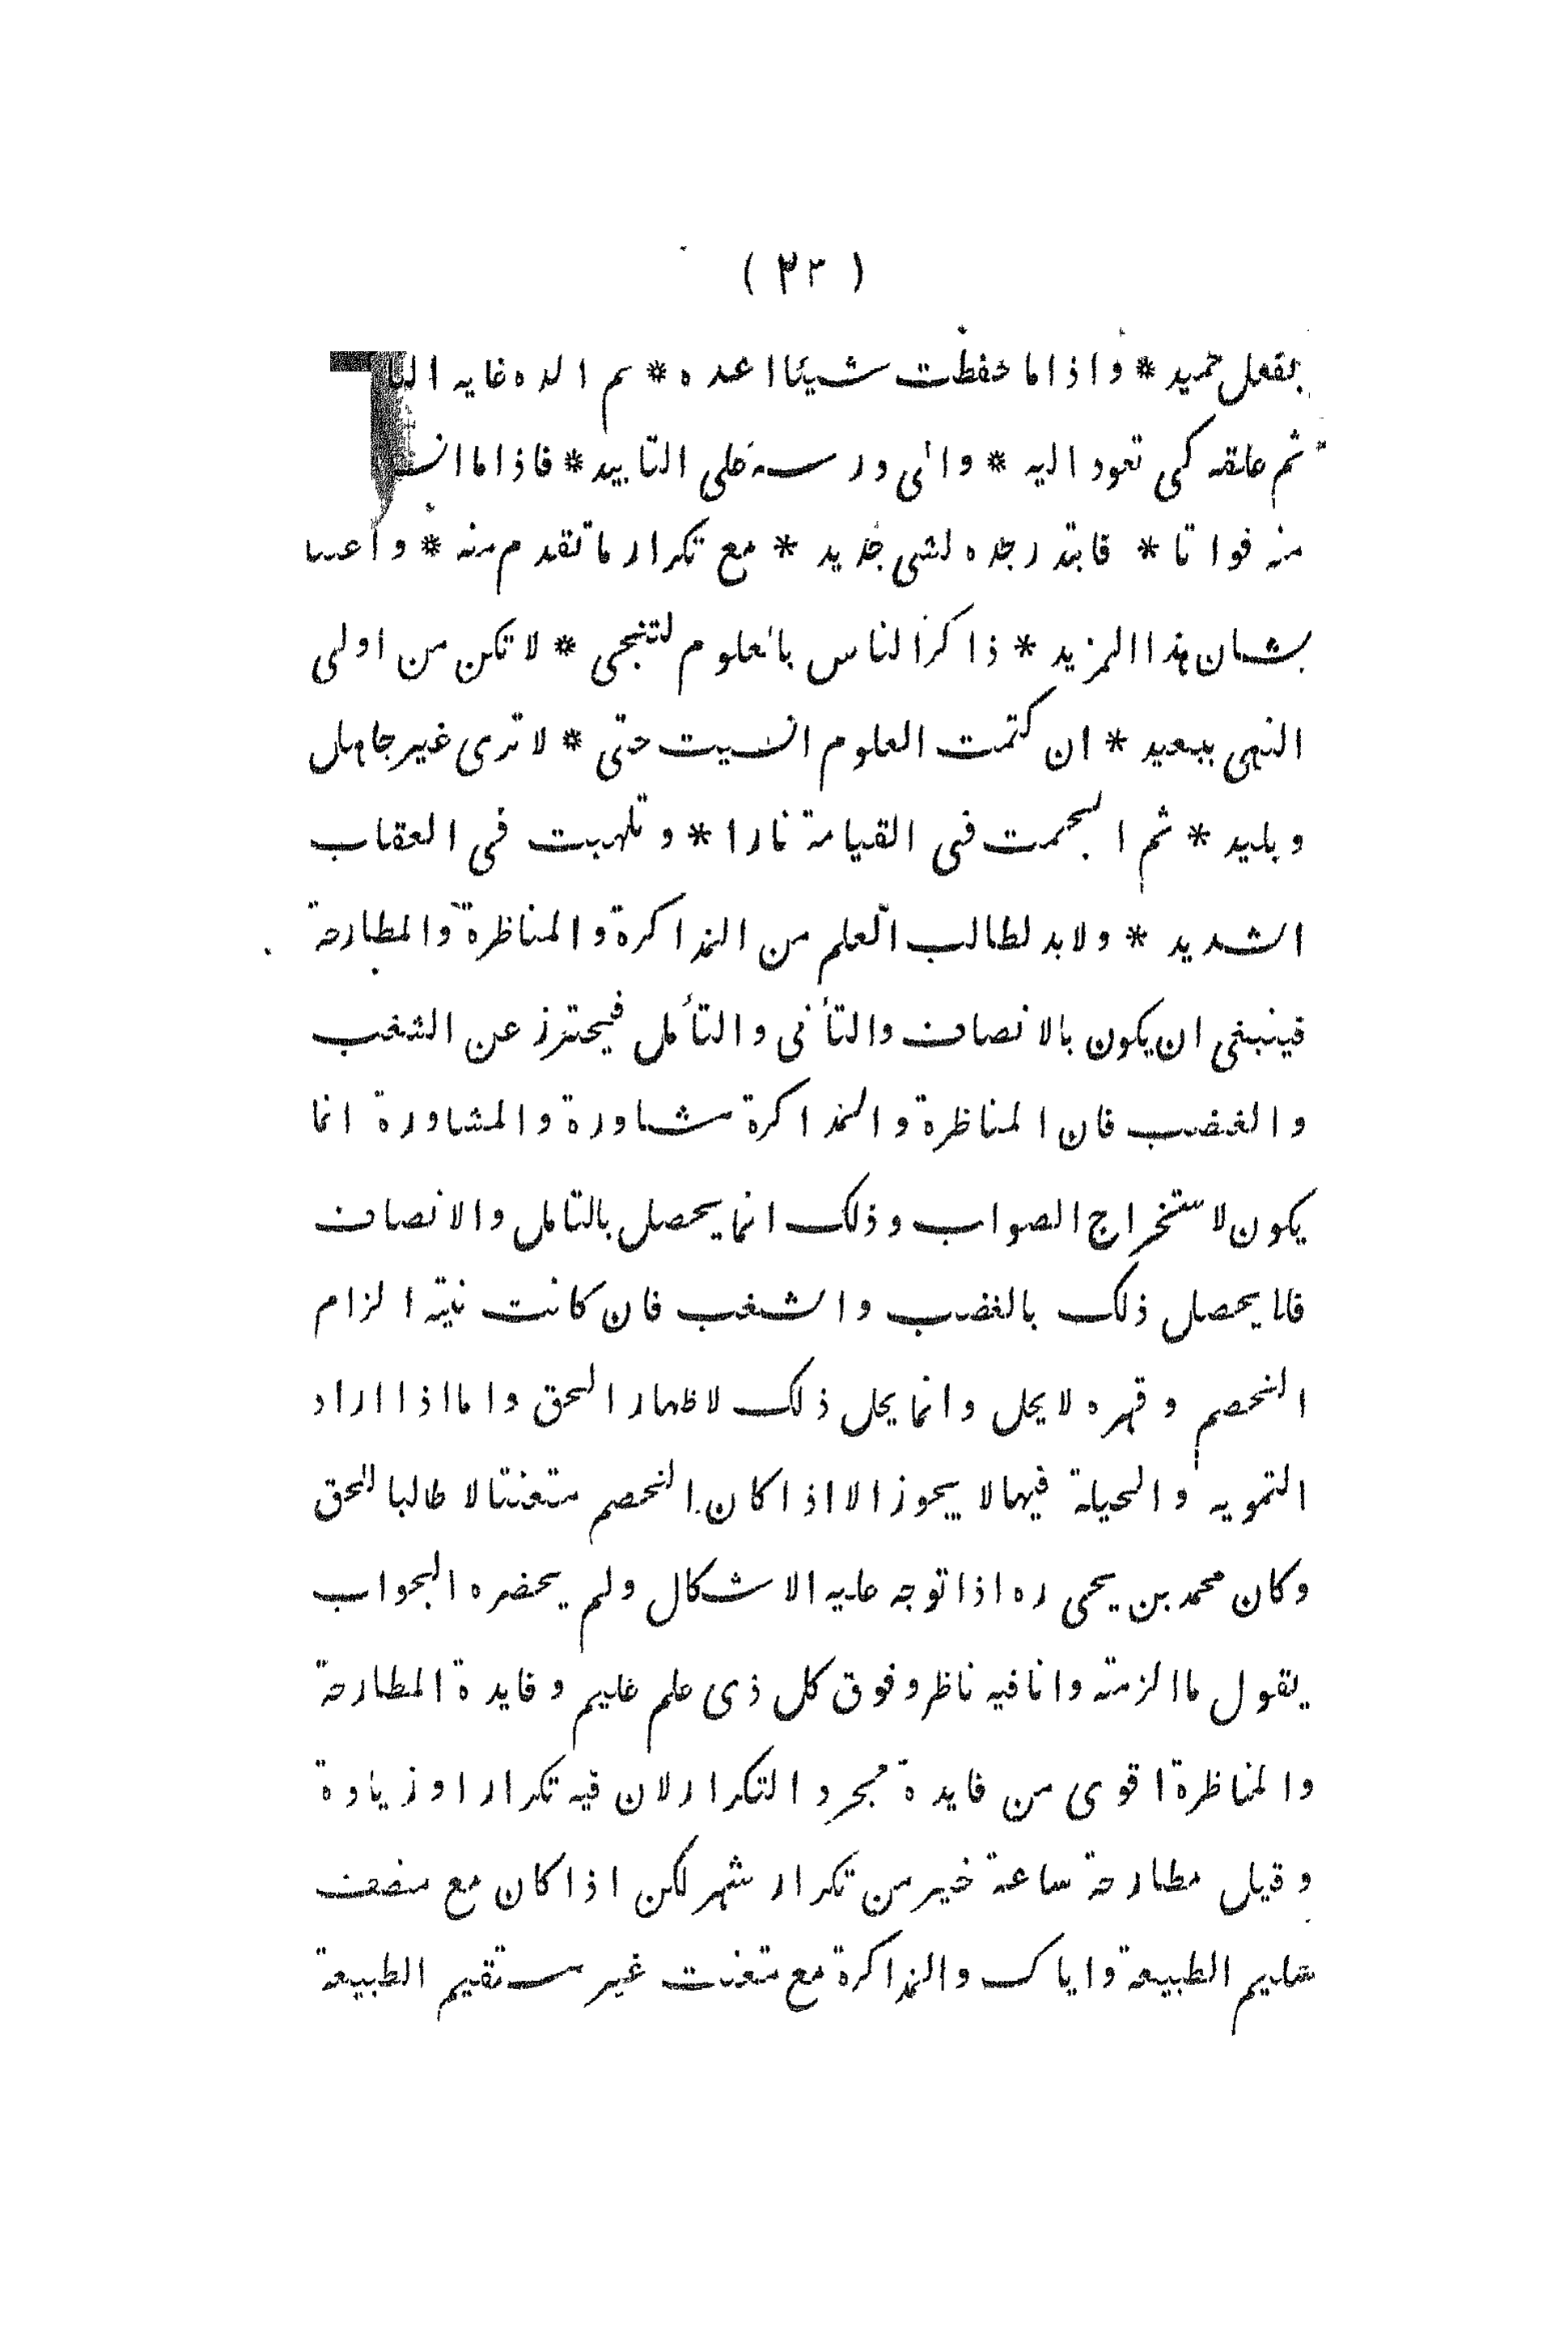 ( ٢٣ )
بفعل حميد * واذا ما حفظت شيئا اعده * ثم اكده غاية
ثم علقه كى تعود اليه * والى درسه على التابيد * فاذا ما
منه فواتا * فابتدر بعده لشى جديد * مع تكرار ما تقدم منه *
بشان هذا المزيد * ذاكر الناس بالعلوم لتحيى * لا تكن من اولى
النهى ببعيد * ان كتمت العلوم انسيت حتى * لا ترى غير جاهل
وبليد * ثم الجمت فى القيامة نارا * وتلهبت فى العقاب
الشديد * ولابد لطالب العلم من المذاكرة والمناظرة والمطارحة
فينبغى ان يكون بالانصاف والتأنى والتأمل فيحترز عن الشغب
والغضب فان المناظرة والمذاكرة مشاورة والمشاورة انما
يكون لاستخراج الصواب وذلك انما يحصل بالتامل والانصاف
فلا يحصل ذلك بالغضب والشغب فان كانت نيته الزام
الخصم وقهره لا يحل وانما يحل ذلك لاظهار الحق واما اذا اراد
التمويه والحيلة فيهما لا يجوز الا اذا كان الخصم متعنتا لا طالبا للحق
وكان محمد بن يحيى ره اذا توجه عليه الاشكال ولم يحضره الجواب
يقول ما الزمته وانا فيه ناظر وفوق كل ذى علم عليم وفايدة المطارحة
والمناظرة اقوى من فايدة مجرد التكرار لان فيه تكرارا وزيادة
وقيل مطارحة ساعة خير من تكرار شهر لكن اذا كان مع منصف
سليم الطبيعة واياك والمذاكرة مع متعنت غير مستقيم الطبيعة